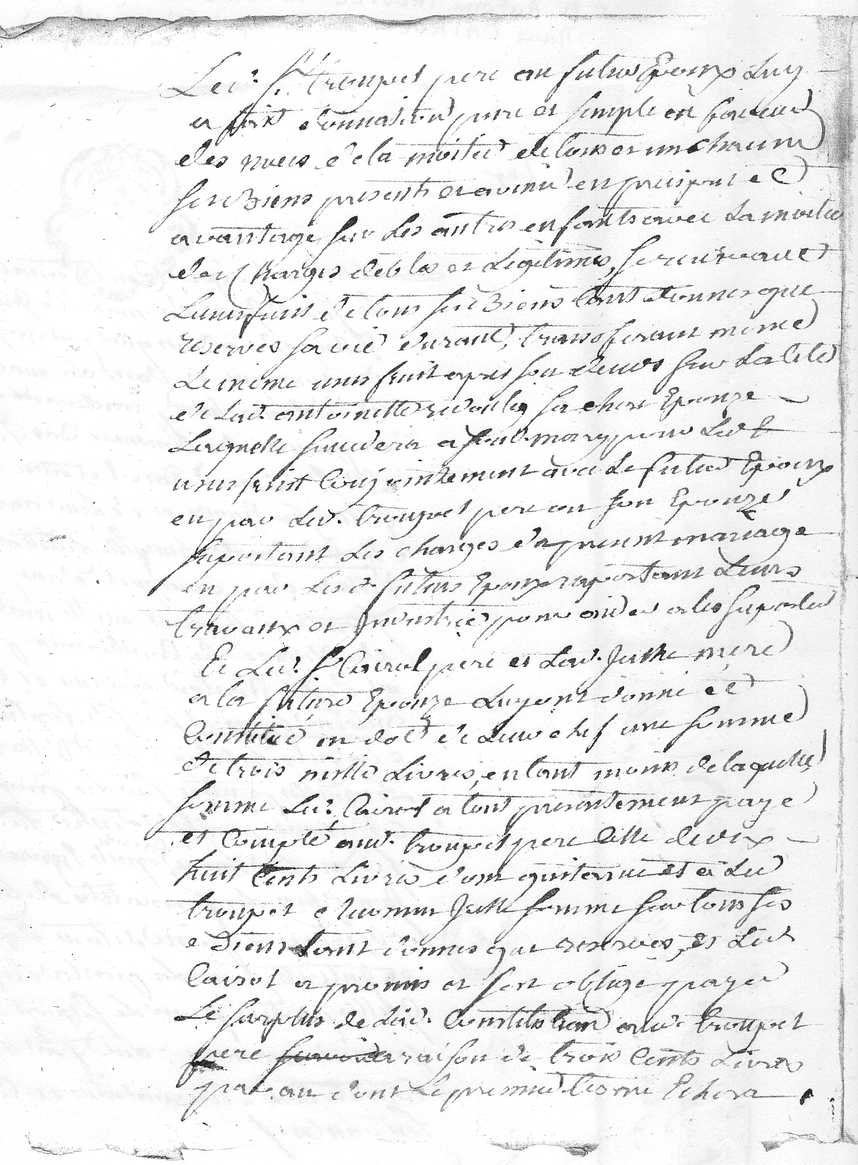 Led.t Sr troupel pere au futur Epoux Luy
a fait donnation pure et simple en faveur
des nuces de la moitié de tous et un chacuns
ses Biens presents et avenir en preciput et
avantage sur Les autres enfants avec La moitié
des Charges debtes et Legitimes, se reservant
Lusufruit de tous ses Biens tant donnes que
reserves sa vie durant, transferant meme
Le meme usufruit apres son deces sur La tete
de Lad. antoinette sa chere Epouze
Laquelle succedera a sond. mary pour Led.t
usufruit Conjointement avec Le futur Epoux
en par Led. troupel pere ou son Epouze
suportant Les charges du present mariage
en par Lesd. futurs Epoux raportant Leurs
travaux et Industrie pour aider a les suporter
Et Led. Sr Cairol pere et Lad. mere
a la future Epouze Luy ont donné et
Constitué en dot de Leur chef une somme
de trois mille Livres, en tant moins de laquelle
somme Led. Cairol a tout presentement payé
et Compté aud. troupel pere Celle de dix
huit Cents Livres dont quittence et a Led.
troupel femme sur tous ses
Biens tant donnes que reserves, et Led.
Cairol a promis et s'est obligé payer
Le surplus de Lad. Constitution aud. troupel
pere a raison de trois Cents Livres
par an dont Le premier terme Echera